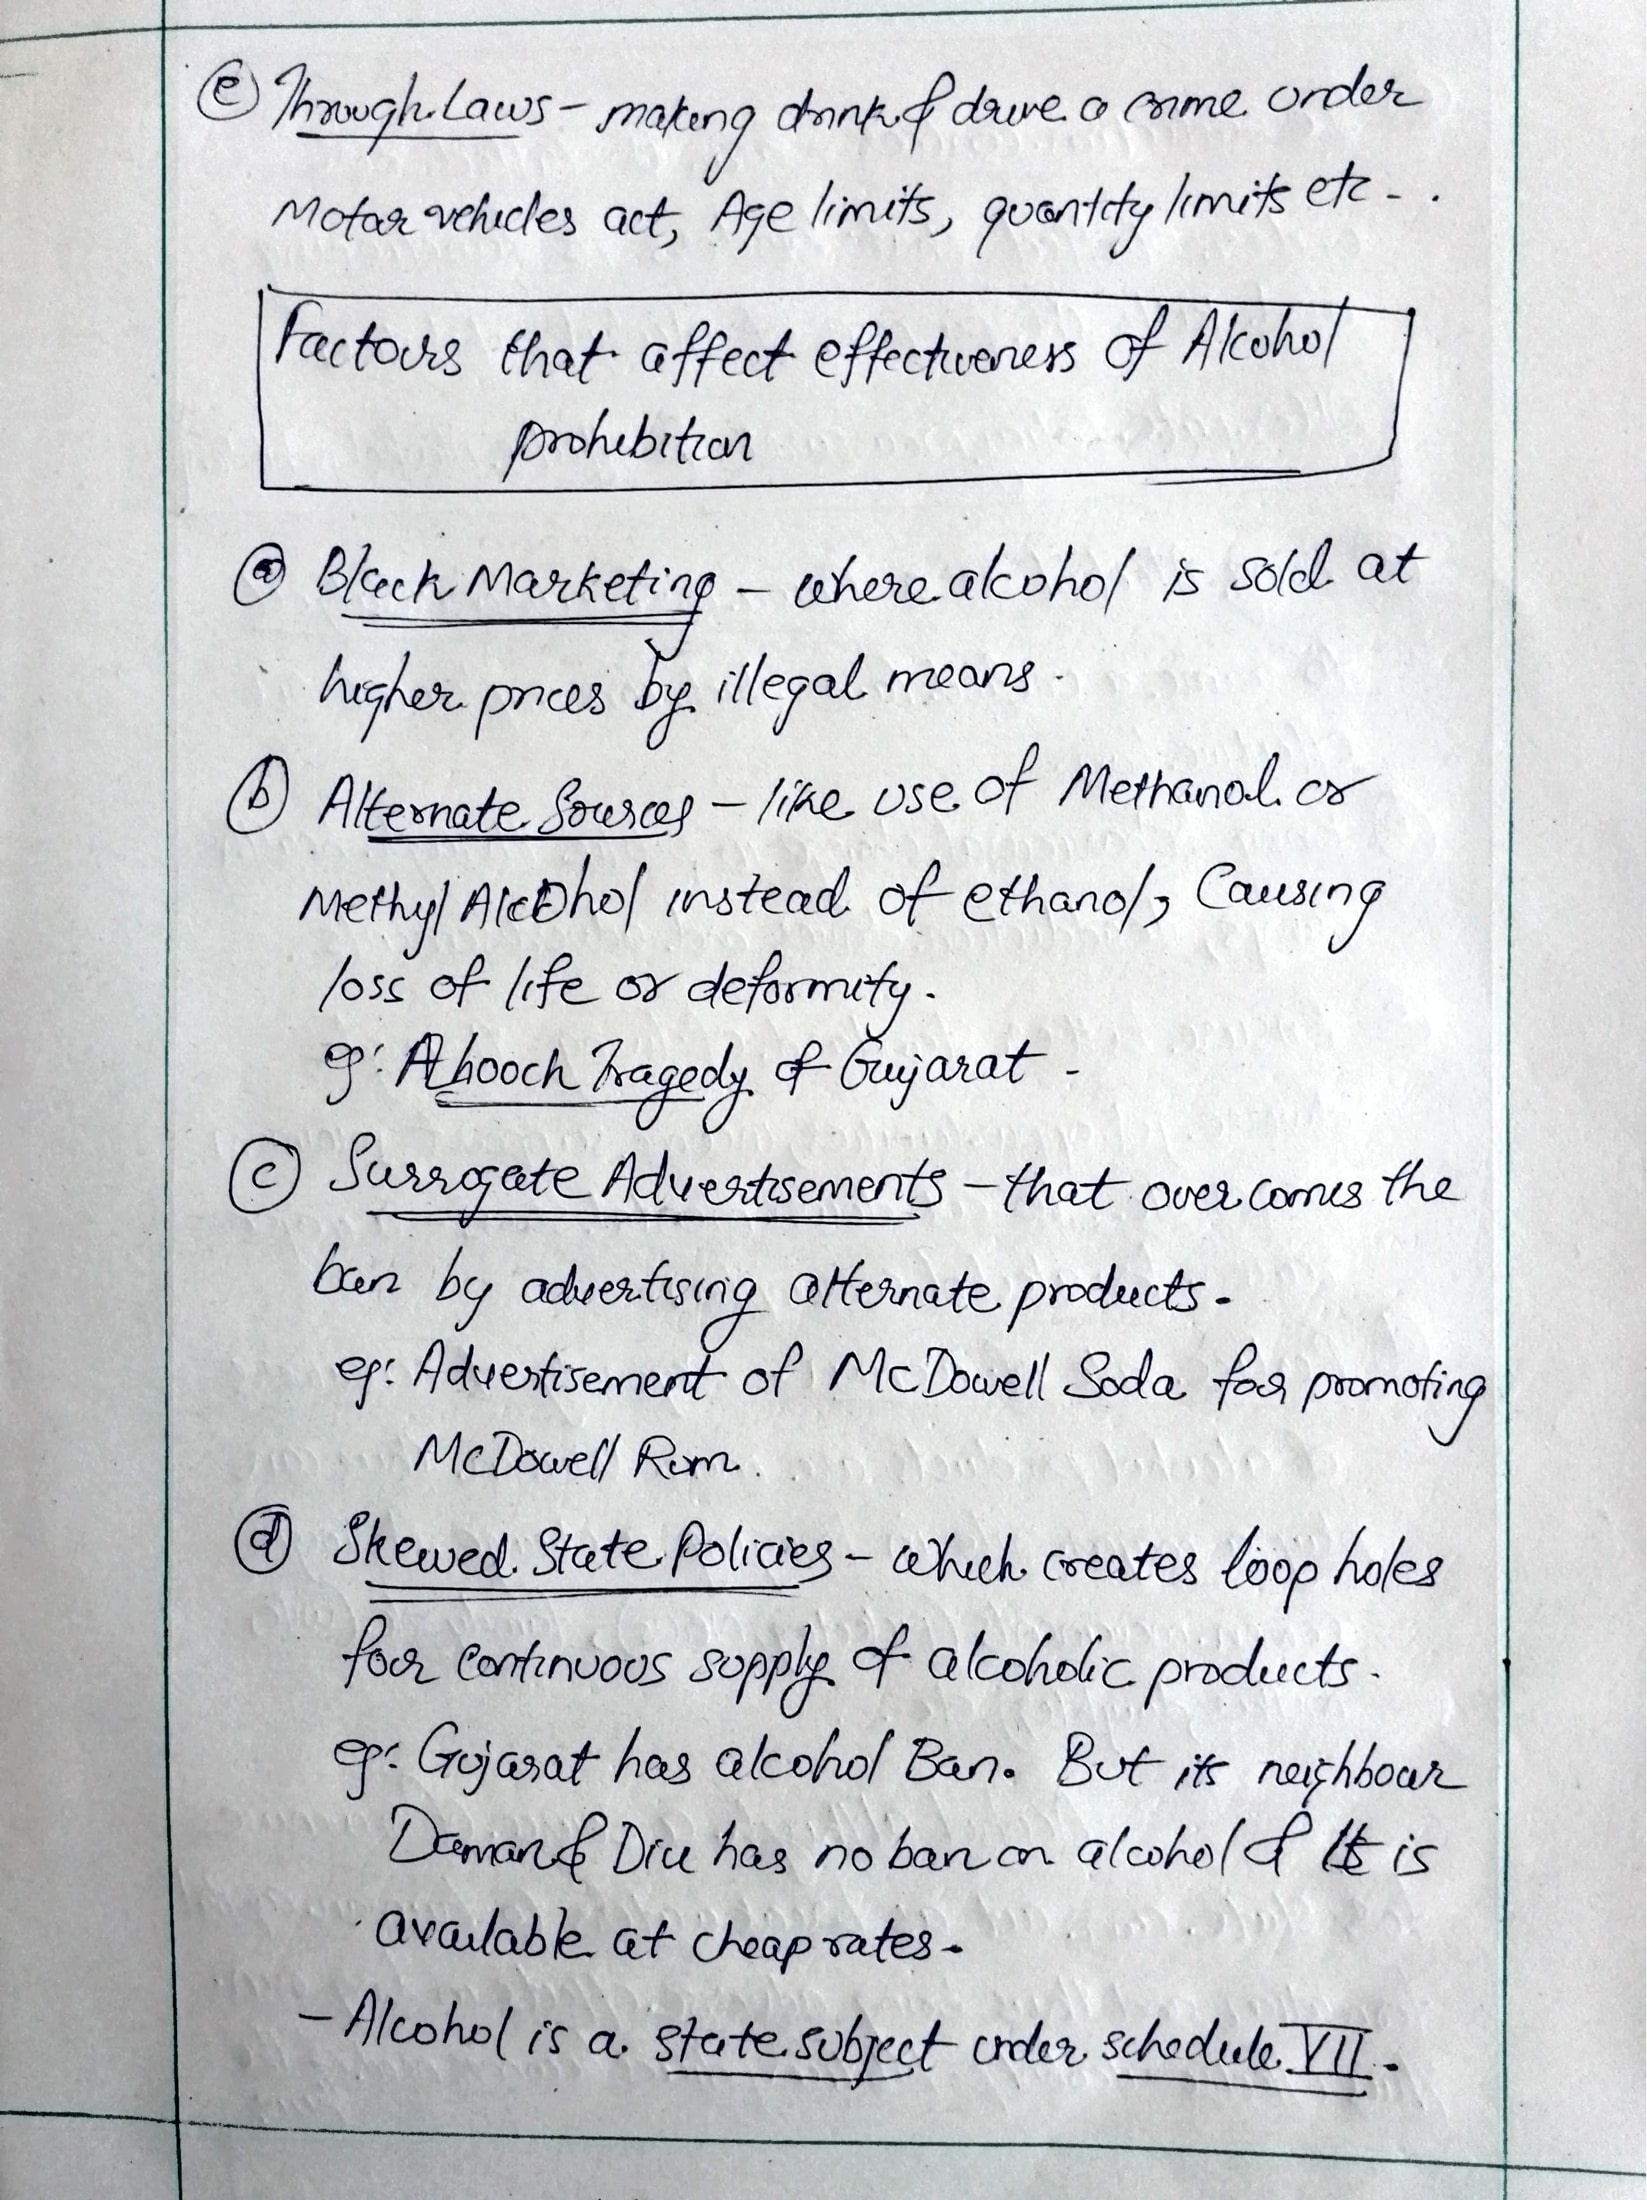 ⓔ Through Laws - making drink & drive a crime under
Motor vehicles act, Age limits, quantity limits etc - .
Factors that affect effectiveness of Alcohol
prohibition
ⓐ Black Marketing - where alcohol is sold at
higher prices by illegal means.
ⓑ Alternate Sources - like use of Methanol or
Methyl Alcohol instead of ethanol, Causing
loss of life or deformity.
eg: hooch Tragedy of Gujarat -
ⓒ Surrogate Advertisements - that overcomes the
ban by advertising alternate products.
eg: Advertisement of McDowell Soda for promoting
McDowell Rum.
ⓓ Skewed State Policies - which creates loop holes
for continuous supply of alcoholic products.
eg: Gujarat has alcohol Ban. But its neighbour
Daman & Diu has no ban on alcohol & It is
available at cheap rates.
- Alcohol is a state subject under schedule VII.